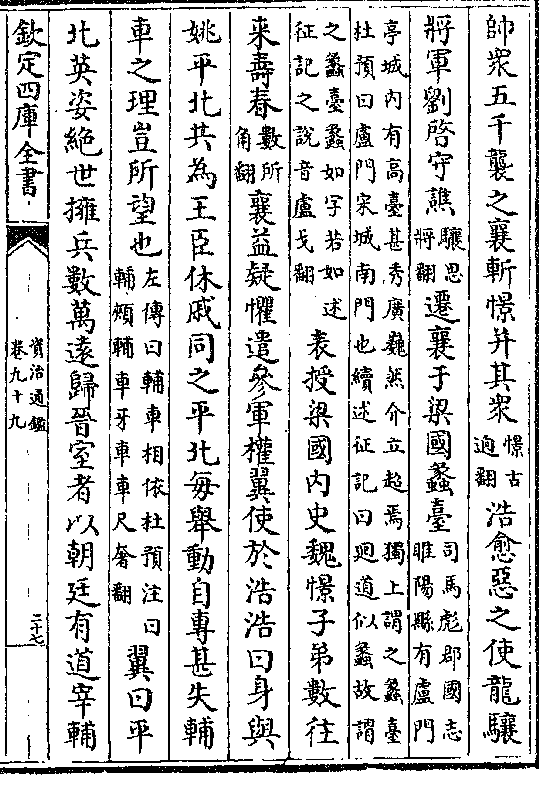 帥衆五千襲之襄斬憬幷其衆憬古迥翻浩愈惡之使龍驤
將軍劉啓守譙驤思將翻遷襄于梁國蠡臺司馬彪郡國志睢陽縣有盧門
亭城内有高臺甚秀廣巍然介立超焉獨上謂之蠡臺杜預曰盧門宋城南門也續述征記曰迴道似蠡故謂
之蠡臺蠡如字若如述征記之說音盧戈翻表授梁國内史魏憬子弟數往
來壽春數所角翻襄益疑懼遣參軍權翼使於浩浩曰身與
姚平北共為王臣休戚同之平北每舉動自專甚失輔
車之理豈所望也左傳曰輔車相依杜預注曰輔頰輔車牙車車尺奢翻翼曰平
北英姿絶世擁兵數萬遠歸晉室者以朝廷有道宰輔
欽定四庫全書
資治通鑑
卷九十九
二十七